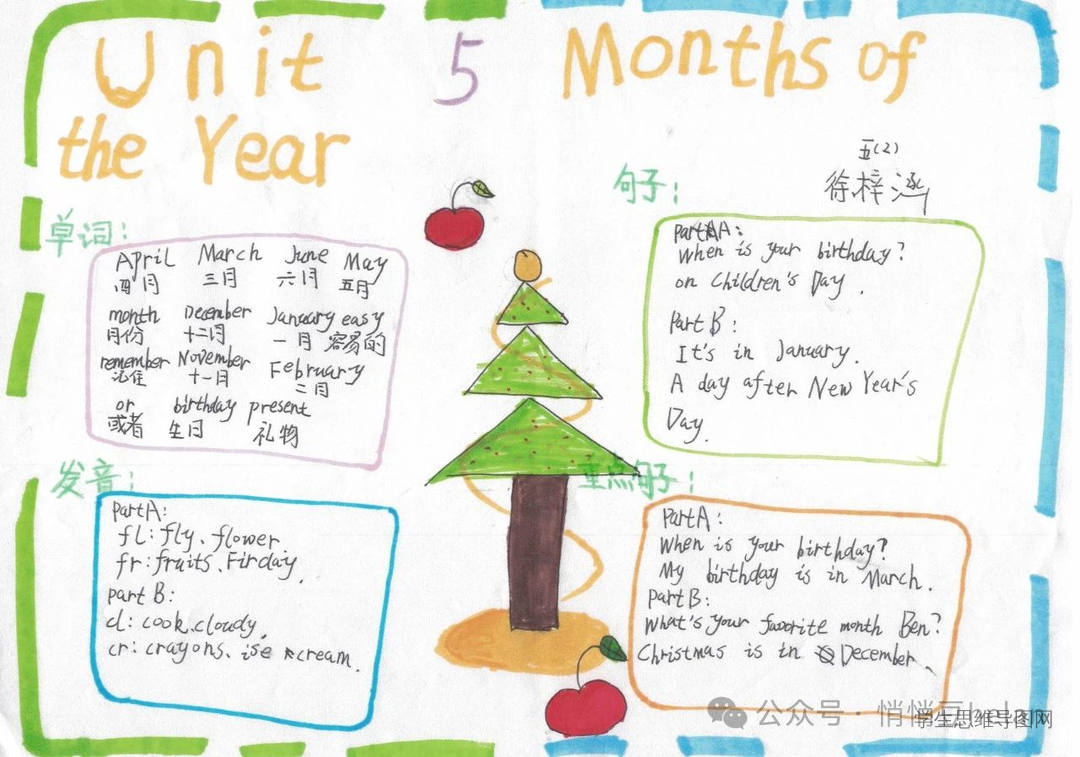 Unit 5 Months of
the Year
五(2)
徐梓涵
单词:
April March June May
四月 三月 六月 五月
month December January easy
月份 十二月 一月 容易的
remember November February
记住 十一月 二月
or birthday present
或者 生日 礼物
句子:
PartA:
When is your birthday?
on Children's Day.
Part B:
It's in January.
A day after New Year's
Day.
发音:
PartA:
fl: fly、flower
fr: fruits、Firday.
part B:
cl: cook、cloudy.
cr: crayons、ise cream.
重点句子:
PartA:
When is your birthday?
My birthday is in March.
partB:
What's your favorite month Ben?
Christmas is in December、
公众号
学生思维导图网